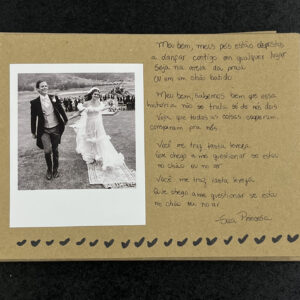 Meu bem, meus pés estão dispostos
a dançar contigo em qualquer lugar
Seja na areia da praia
Ou em um chão batido
Meu bem, sabemos bem que essa
história não se trata só de nós dois
Veja que todas as coisas cooperam,
cooperam pra nós
Você me traz tanta leveza
Que chego a me questionar se estou
no chão ou no ar
Você me traz tanta leveza
Que chego a me questionar se estou
no chão ou no ar.